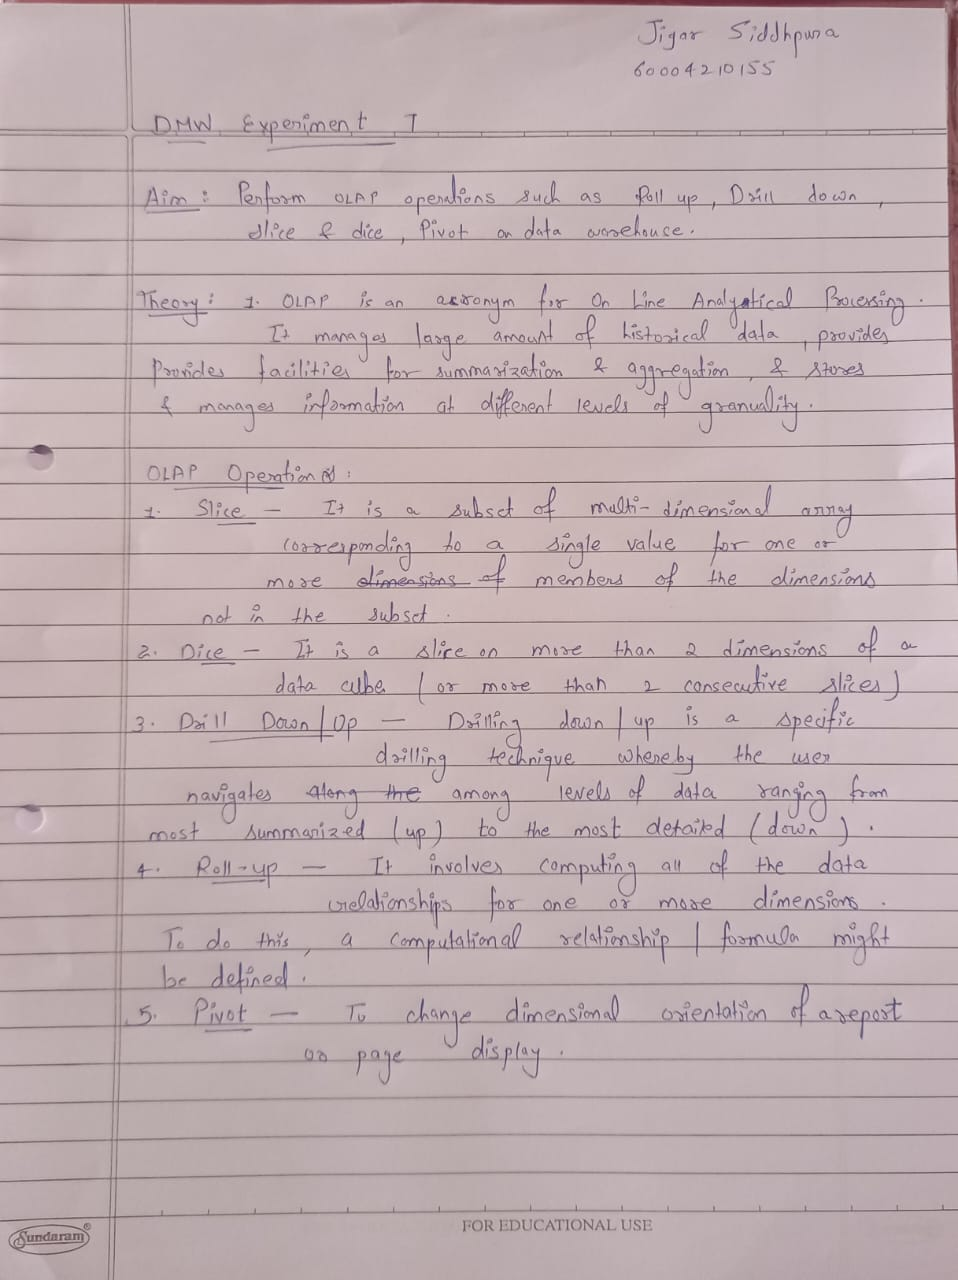 Jigar Siddhpura
60004210155
DMW Experiment 1
Aim : Perform OLAP operations such as Roll up, Drill down,
slice & dice, Pivot on data warehouse.
Theory : 1. OLAP is an acronym for On Line Analytical Processing.
It manages large amount of historical data, provides
Provides facilities for summarization & aggregation, & stores
& manages information at different levels of granuality.
OLAP Operations :
1. Slice - It is a subset of multi-dimensional array
corresponding to a single value for one or
more dimensions of members of the dimensions
not in the subset.
2. Dice - It is a slice on more than 2 dimensions of a
data cube (or more than 2 consecutive slices)
3. Drill Down/Up - Drilling down/up is a specific
drilling technique whereby the user
navigates along the among levels of data ranging from
most summarized (up) to the most detailed (down).
4. Roll-up - It involves computing all of the data
relationships for one or more dimensions.
To do this, a computational relationship / formula might
be defined.
5. Pivot - To change dimensional orientation of a report
or page display.
FOR EDUCATIONAL USE
Sundaram®